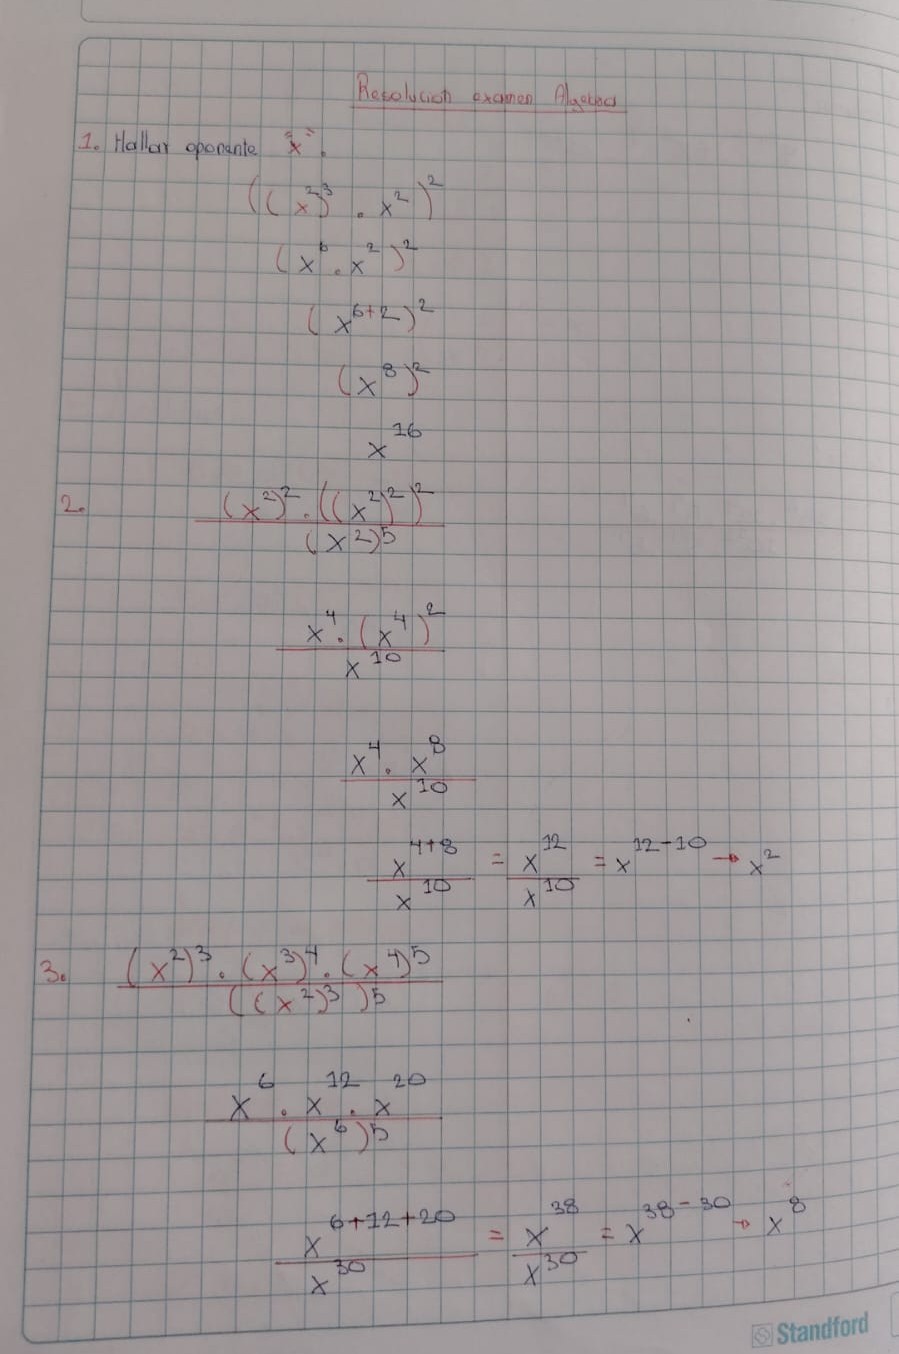 Resolucion examen Algebra
1. Hallar exponente "x".
((x²)³ . x²)²
(x⁶ . x²)²
(x⁶⁺²)²
(x⁸)²
x¹⁶
2. (x²)² . ((x²)²)² / (x²)⁵
x⁴ . (x⁴)² / x¹⁰
x⁴ . x⁸ / x¹⁰
x⁴⁺⁸ / x¹⁰ = x¹² / x¹⁰ = x¹²⁻¹⁰ → x²
3. (x²)³ . (x³)⁴ . (x⁴)⁵ / ((x²)³)⁵
x⁶ . x¹² . x²⁰ / (x⁶)⁵
x⁶⁺¹²⁺²⁰ / x³⁰ = x³⁸ / x³⁰ = x³⁸⁻³⁰ → x⁸
Standford